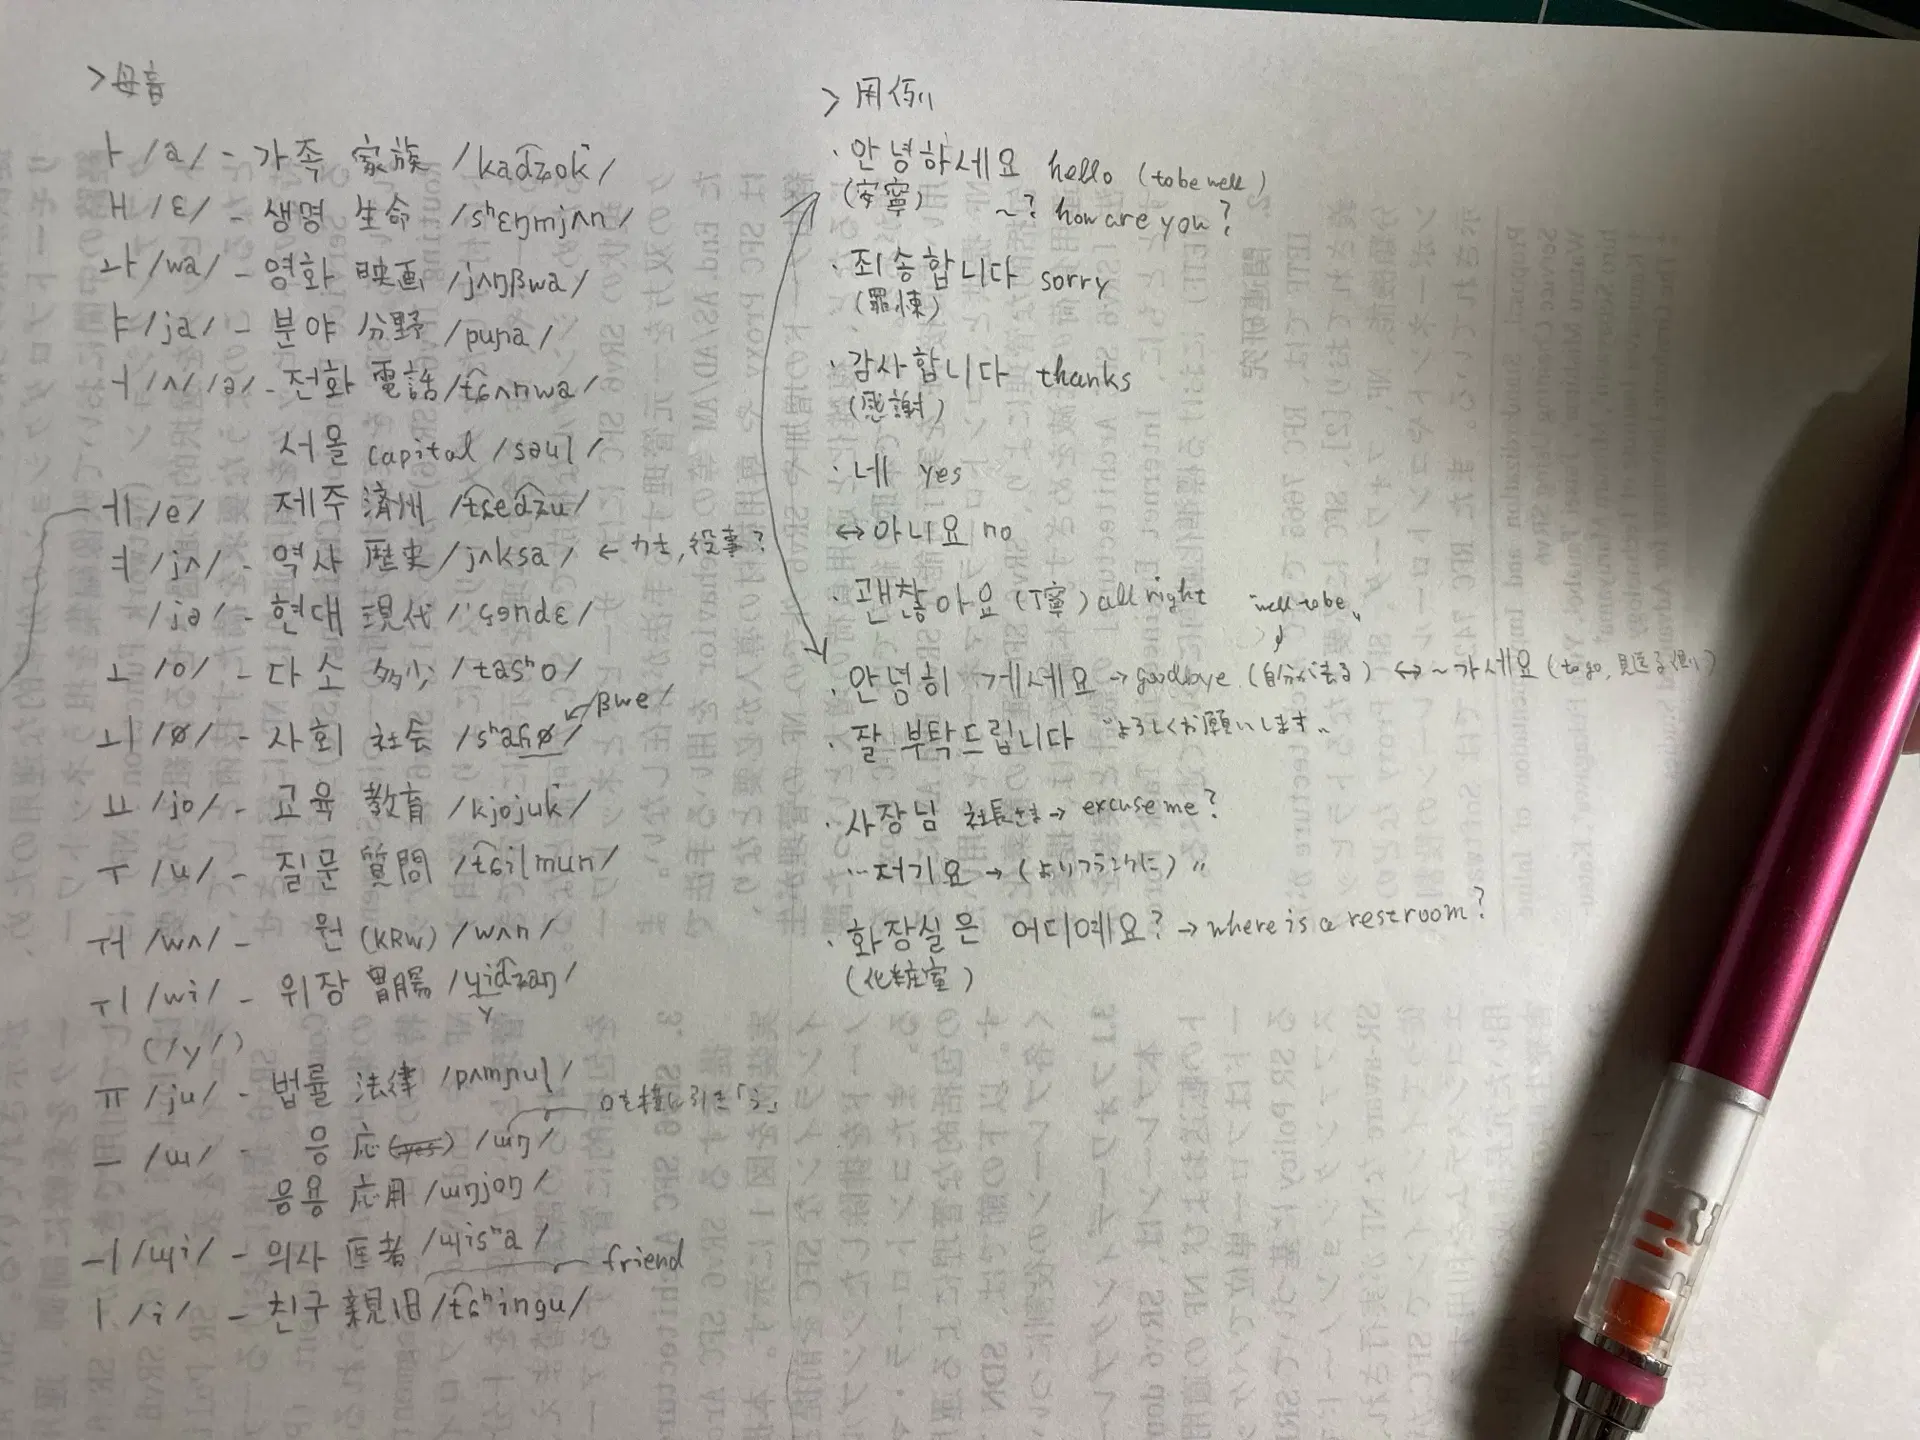 > 母音
ㅏ /a/ - 가족 家族 /kad͡zok̚/
ㅐ /ɛ/ - 생명 生命 /sʰɛŋmjʌŋ/
ㅘ /wa/ - 영화 映画 /jʌŋβwa/
ㅑ /ja/ - 분야 分野 /puɲa/
ㅓ /ʌ/ /ə/ - 전화 電話 /t͡ɕʌnwa/
서울 capital /səul/
ㅔ /e/ 제주 済州 /t͡ɕed͡zu/
ㅕ /jʌ/ - 역사 歴史 /jʌksa/ ← 力士, 役事?
/jə/ - 현대 現代 /çəndɛ/
ㅗ /o/ - 다소 多少 /tasʰo/
ㅚ /ø/ - 사회 社会 /sʰaɦø/ ← βwe/
ㅛ /jo/ - 교육 教育 /kjojuk̚/
ㅜ /u/ - 질문 質問 /t͡ɕilmun/
ㅝ /wʌ/ - 원 (KRW) /wʌn/
ㅟ /wi/ - 위장 胃腸 /ɥid͡zaŋ/
y
(/y/)
ㅠ /ju/ - 법률 法律 /pʌmɲul/
ㅡ /ɯ/ - 응 応 (yes) /ɯŋ/ 口を横に引き「う」
응용 応用 /ɯŋjoŋ/
ㅢ /ɰi/ - 의사 医者 /ɰisʰa/
ㅣ /i/ - 친구 親旧 /t͡ɕʰingu/ friend
> 用例
· 안녕하세요 hello (to be well)
(安寧) ~? how are you?
· 죄송합니다 sorry
(罪悚)
· 감사합니다 thanks
(感謝)
· 네 yes
↔ 아니요 no
· 괜찮아요 (丁寧) all right
"well-to be"
· 안녕히 계세요 → goodbye (自分が去る) ↔ ~가세요 (to go, 見送る側)
· 잘 부탁드립니다 "よろしくお願いします"
· 사장님 社長さま → excuse me?
… 저기요 → (よりフランクに) 〃
· 화장실은 어디예요? → where is a restroom?
(化粧室)